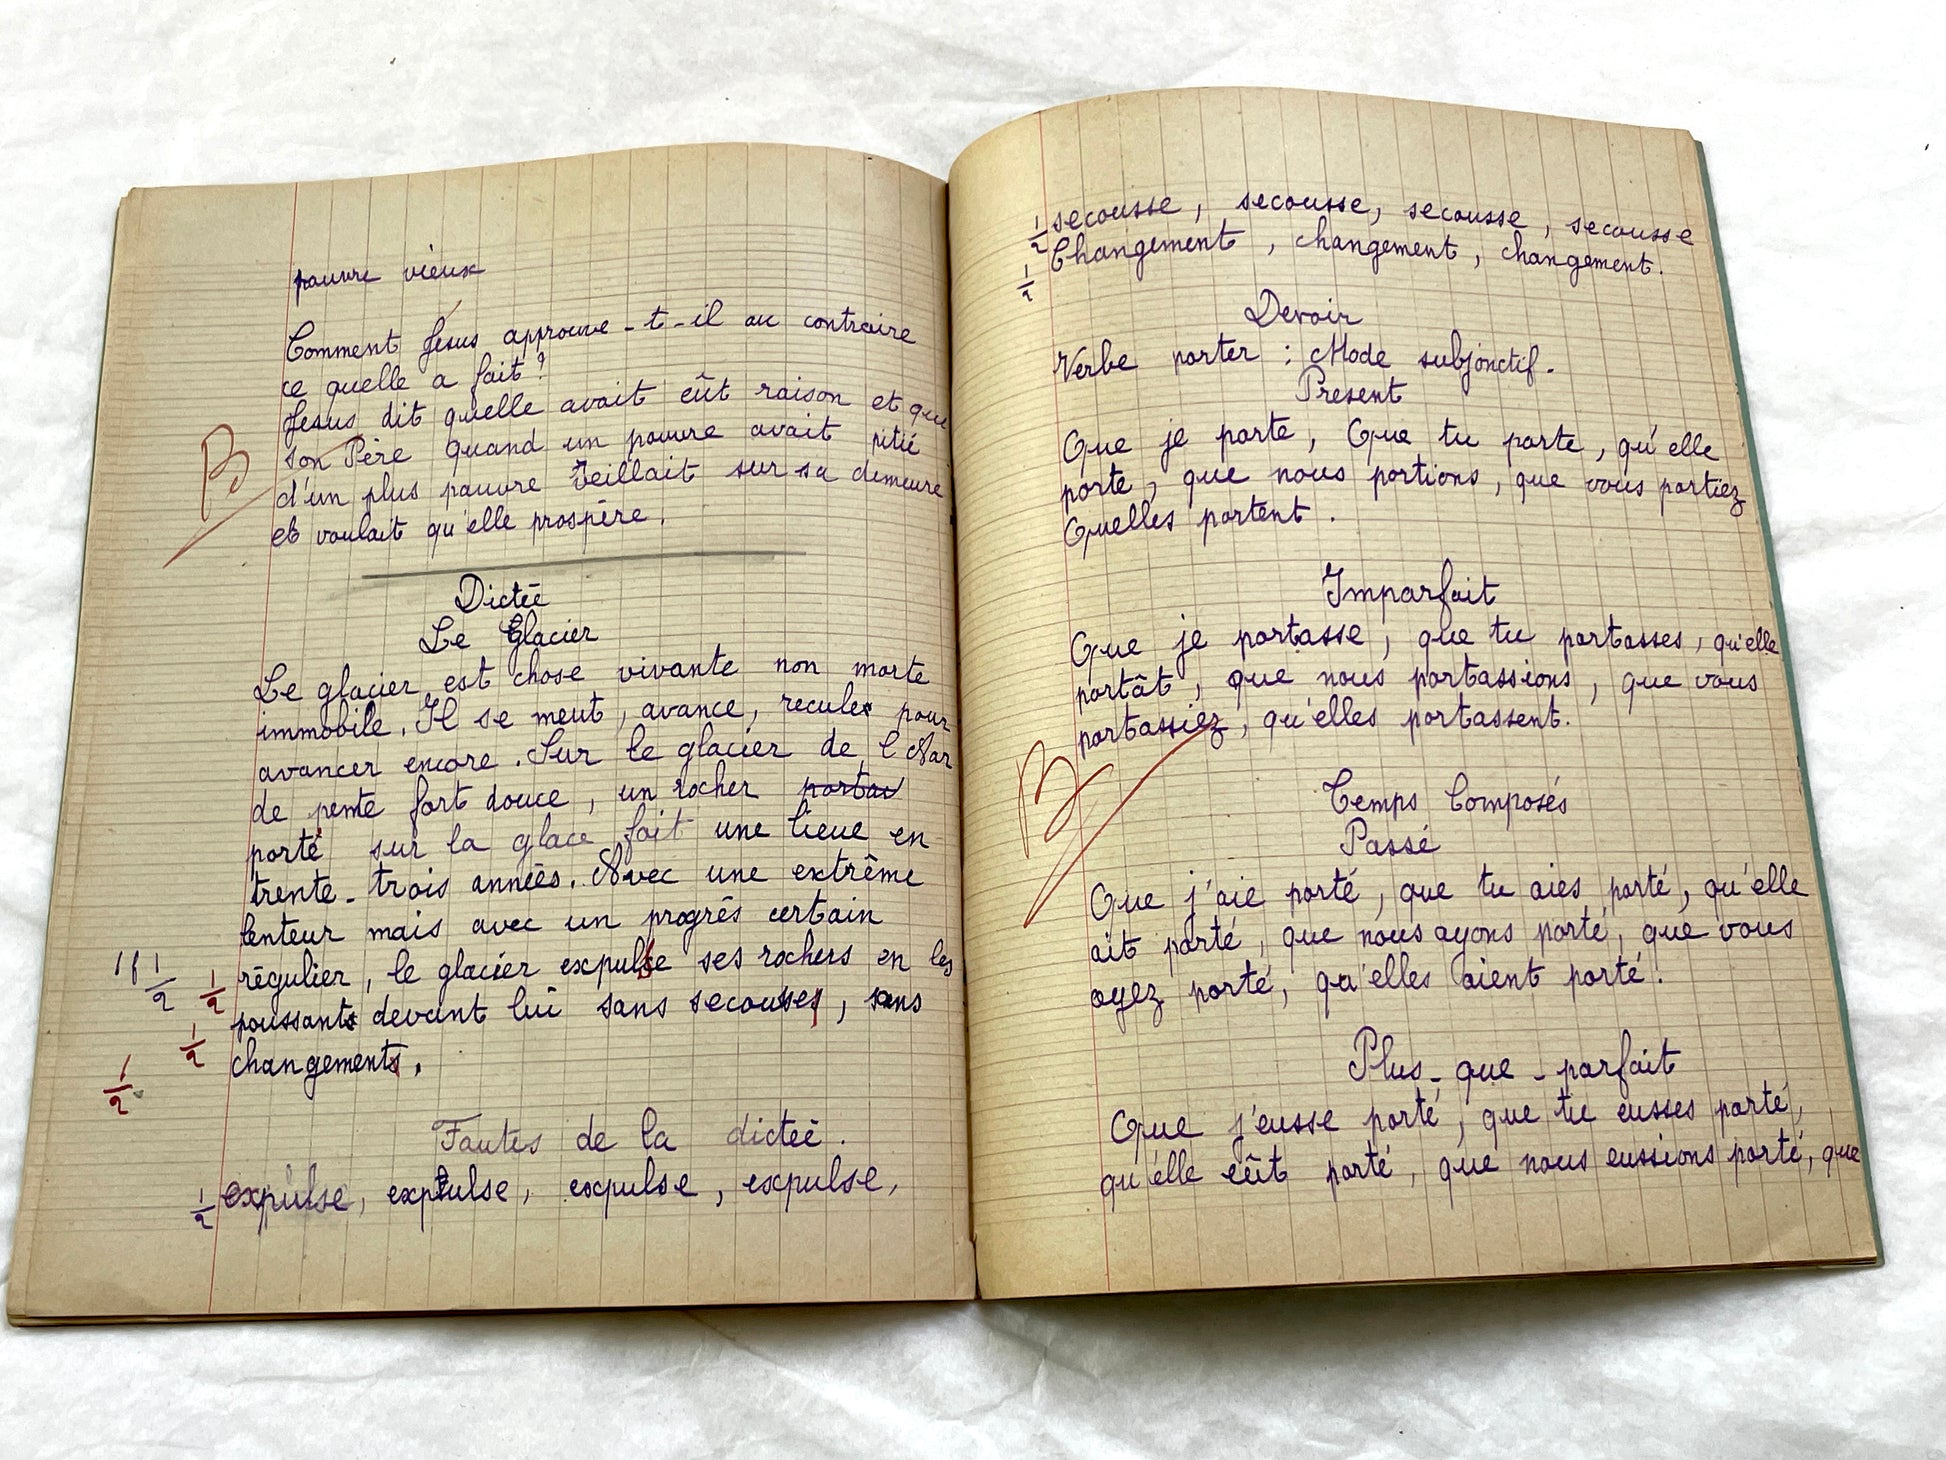 pauvre vieux
Comment Jésus approuve-t-il au contraire
ce quelle a fait ?
Jésus dit quelle avait eût raison et que
son Père quand un pauvre avait pitié
d'un plus pauvre veillait sur sa demeure
et voulait qu'elle prospère.
B
Dictée
Le Glacier
Le glacier est chose vivante non morte
immobile. Il se meut, avance, recule pour
avancer encore. Sur le glacier de l'Aar
de pente fort douce, un rocher portai
porté sur la glace fait une lieue en
trente-trois années. Avec une extrême
lenteur mais avec un progrès certain
1/2 régulier, le glacier expulse ses rochers en les
1/2 poussants devant lui sans secousses, sans
1/2 changements.
Fautes de la dictée.
1/2 expulse, expulse, expulse, expulse,
1/2 secousse, secousse, secousse, secousse
1/2 Changement, changement, changement.
Devoir
Verbe porter : Mode subjonctif.
Présent
Que je porte, Que tu porte, qu'elle
porte, que nous portions, que vous portiez
Quelles portent.
Imparfait
Que je portasse, que tu portasses, qu'elle
portât, que nous portassions, que vous
portassiez, qu'elles portassent.
B
Temps Composés
Passé
Que j'aie porté, que tu aies porté, qu'elle
ait porté, que nous ayons porté, que vous
ayez porté, qu'elles aient porté.
Plus-que-parfait
Que j'eusse porté, que tu eusses porté,
qu'elle eût porté, que nous eussions porté, que